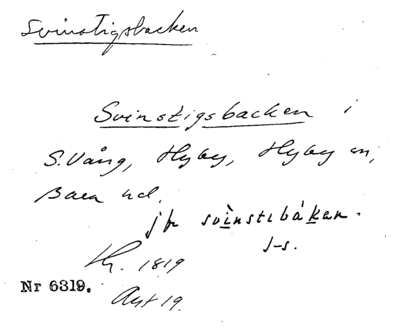 Svinstigsbacken
Svinstigsbacken i
S. Vång, Hyby, Hyby sn,
Bara hd.
jfr svìnstɩbákan.
J-s.
Nr 6319.